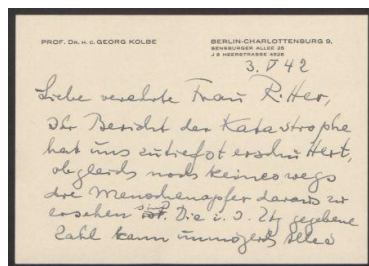 PROF. DR. H. C. GEORG KOLBE
BERLIN-CHARLOTTENBURG 9,
SENSBURGER ALLEE 25
J 9 HEERSTRASSE 4928
3. V 42
Liebe verehrte Frau Ritter,
Ihr Bericht der Katastrophe
hat uns zutiefst erschüttert,
obgleich noch keineswegs
die Menschenopfer daraus zu
ersehen sind. Die i. d. Ztg gegebene
Zahl kann unmöglich alles